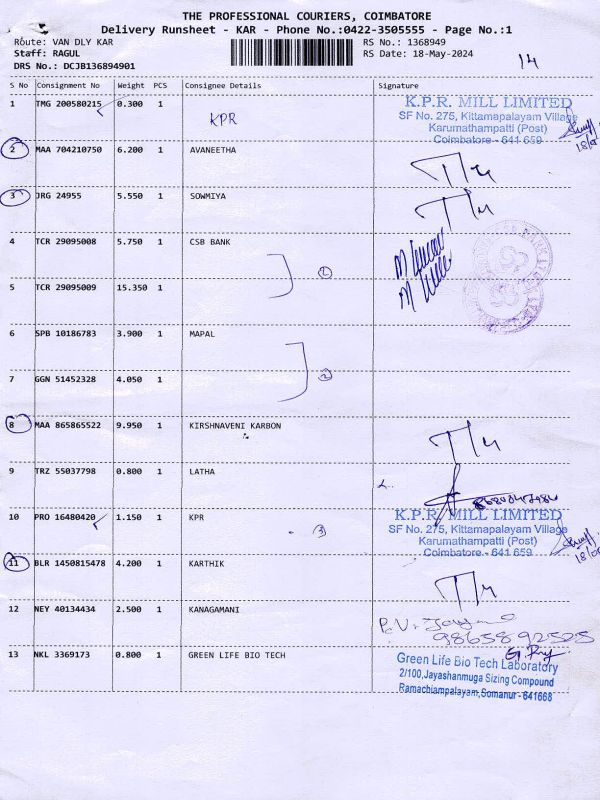 THE PROFESSIONAL COURIERS, COIMBATORE
Delivery Runsheet - KAR - Phone No.:0422-3505555 - Page No.:1
Route: VAN DLY KAR
Staff: RAGUL
DRS No.: DCJB136894901
RS No.: 1368949
RS Date: 18-May-2024
14
S No Consignment No Weight PCS Consignee Details Signature
1 TMG 200580215 0.300 1 KPR
K.P.R. MILL LIMITED
SF No. 275, Kittamapalayam Village
Karumathampatti (Post)
Coimbatore - 641 659
2 MAA 704210750 6.200 1 AVANEETHA
3 JRG 24955 5.550 1 SOWMIYA
4 TCR 29095008 5.750 1 CSB BANK
1
5 TCR 29095009 15.350 1
6 SPB 10186783 3.900 1 MAPAL
2
7 GGN 51452328 4.050 1
8 MAA 865865522 9.950 1 KIRSHNAVENI KARBON
9 TRZ 55037798 0.800 1 LATHA
10 PRO 16480420 1.150 1 KPR
3
K.P.R. MILL LIMITED
SF No. 275, Kittamapalayam Village
Karumathampatti (Post)
Coimbatore - 641 659
11 BLR 1450815478 4.200 1 KARTHIK
12 NEY 40134434 2.500 1 KANAGAMANI
9865892525
13 NKL 3369173 0.800 1 GREEN LIFE BIO TECH
Green Life Bio Tech Laboratory
2/100,Jayashanmuga Sizing Compound
Ramachiampalayam,Somanur - 641668